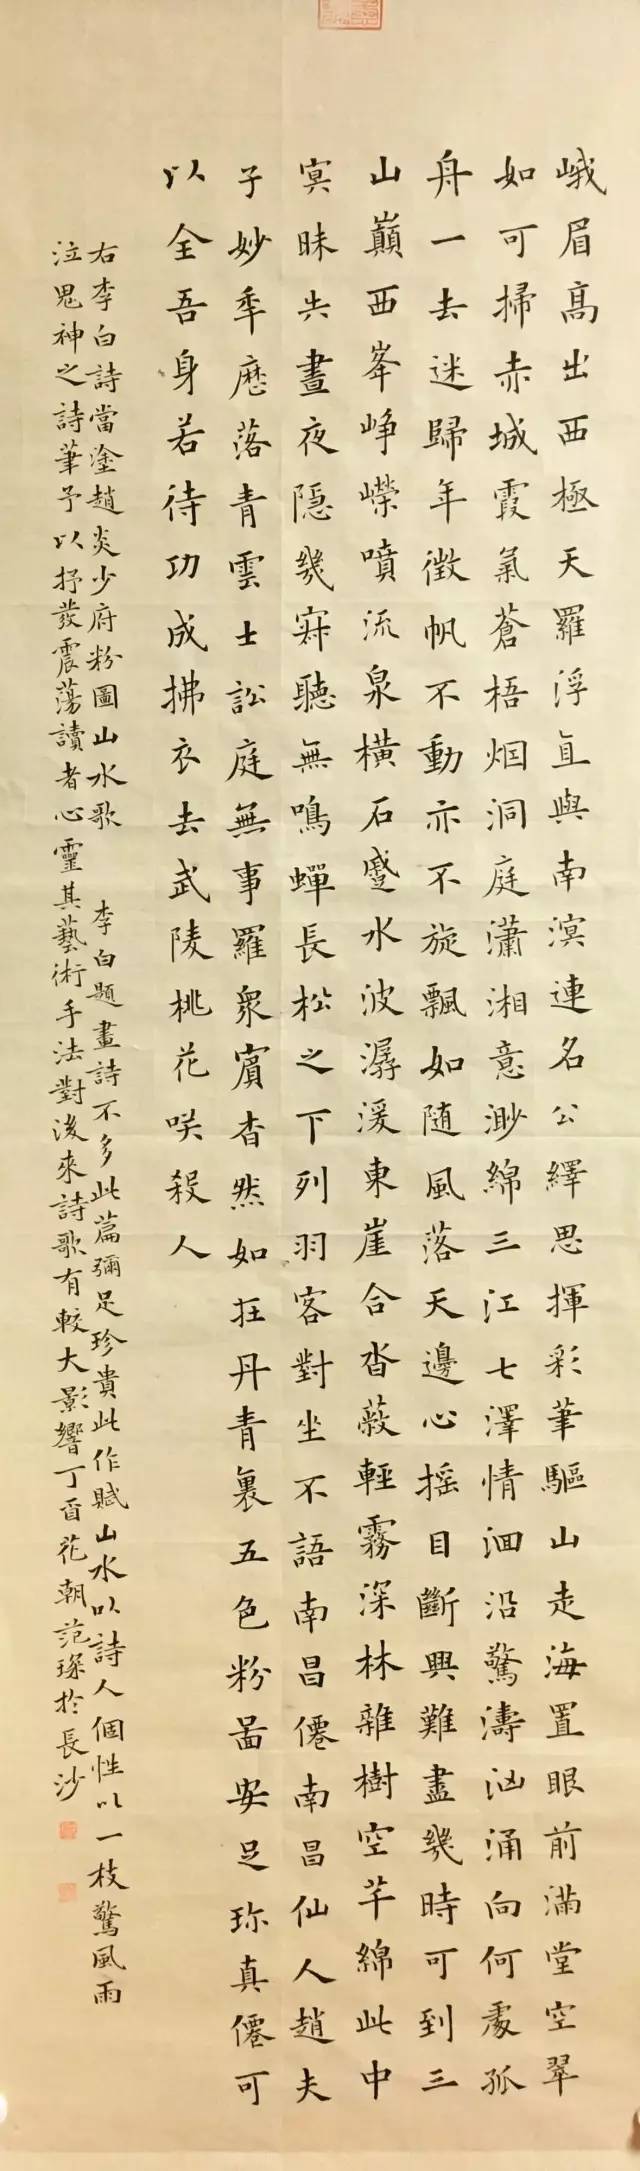 峨眉高出西極天羅浮直與南溟連名公繹思揮彩筆驅山走海置眼前滿堂空翠
如可掃赤城霞氣蒼梧烟洞庭瀟湘意渺綿三江七澤情洄沿驚濤洶涌向何處孤
舟一去迷歸年徵帆不動亦不旋飄如随風落天邊心摇目斷興難盡幾時可到三
山巔西峯崢嶸噴流泉橫石蹙水波潺湲東崖合沓蔽輕霧深林雜樹空芊綿此中
冥昧失晝夜隱幾寂聽無鳴蟬長松之下列羽客對坐不語南昌僊南昌仙人趙夫
子妙年歷落青雲士訟庭無事羅衆賓杳然如在丹青裏五色粉圖安足珎真僊可
以全吾身若待功成拂衣去武陵桃花咲殺人
右李白詩當塗趙炎少府粉圖山水歌 李白題畫詩不多此篇彌足珍貴此作賦山水以詩人個性以一枝驚風雨
泣鬼神之詩筆予以抒發震蕩讀者心靈其藝術手法對後來詩歌有較大影響丁酉花朝范琛於長沙